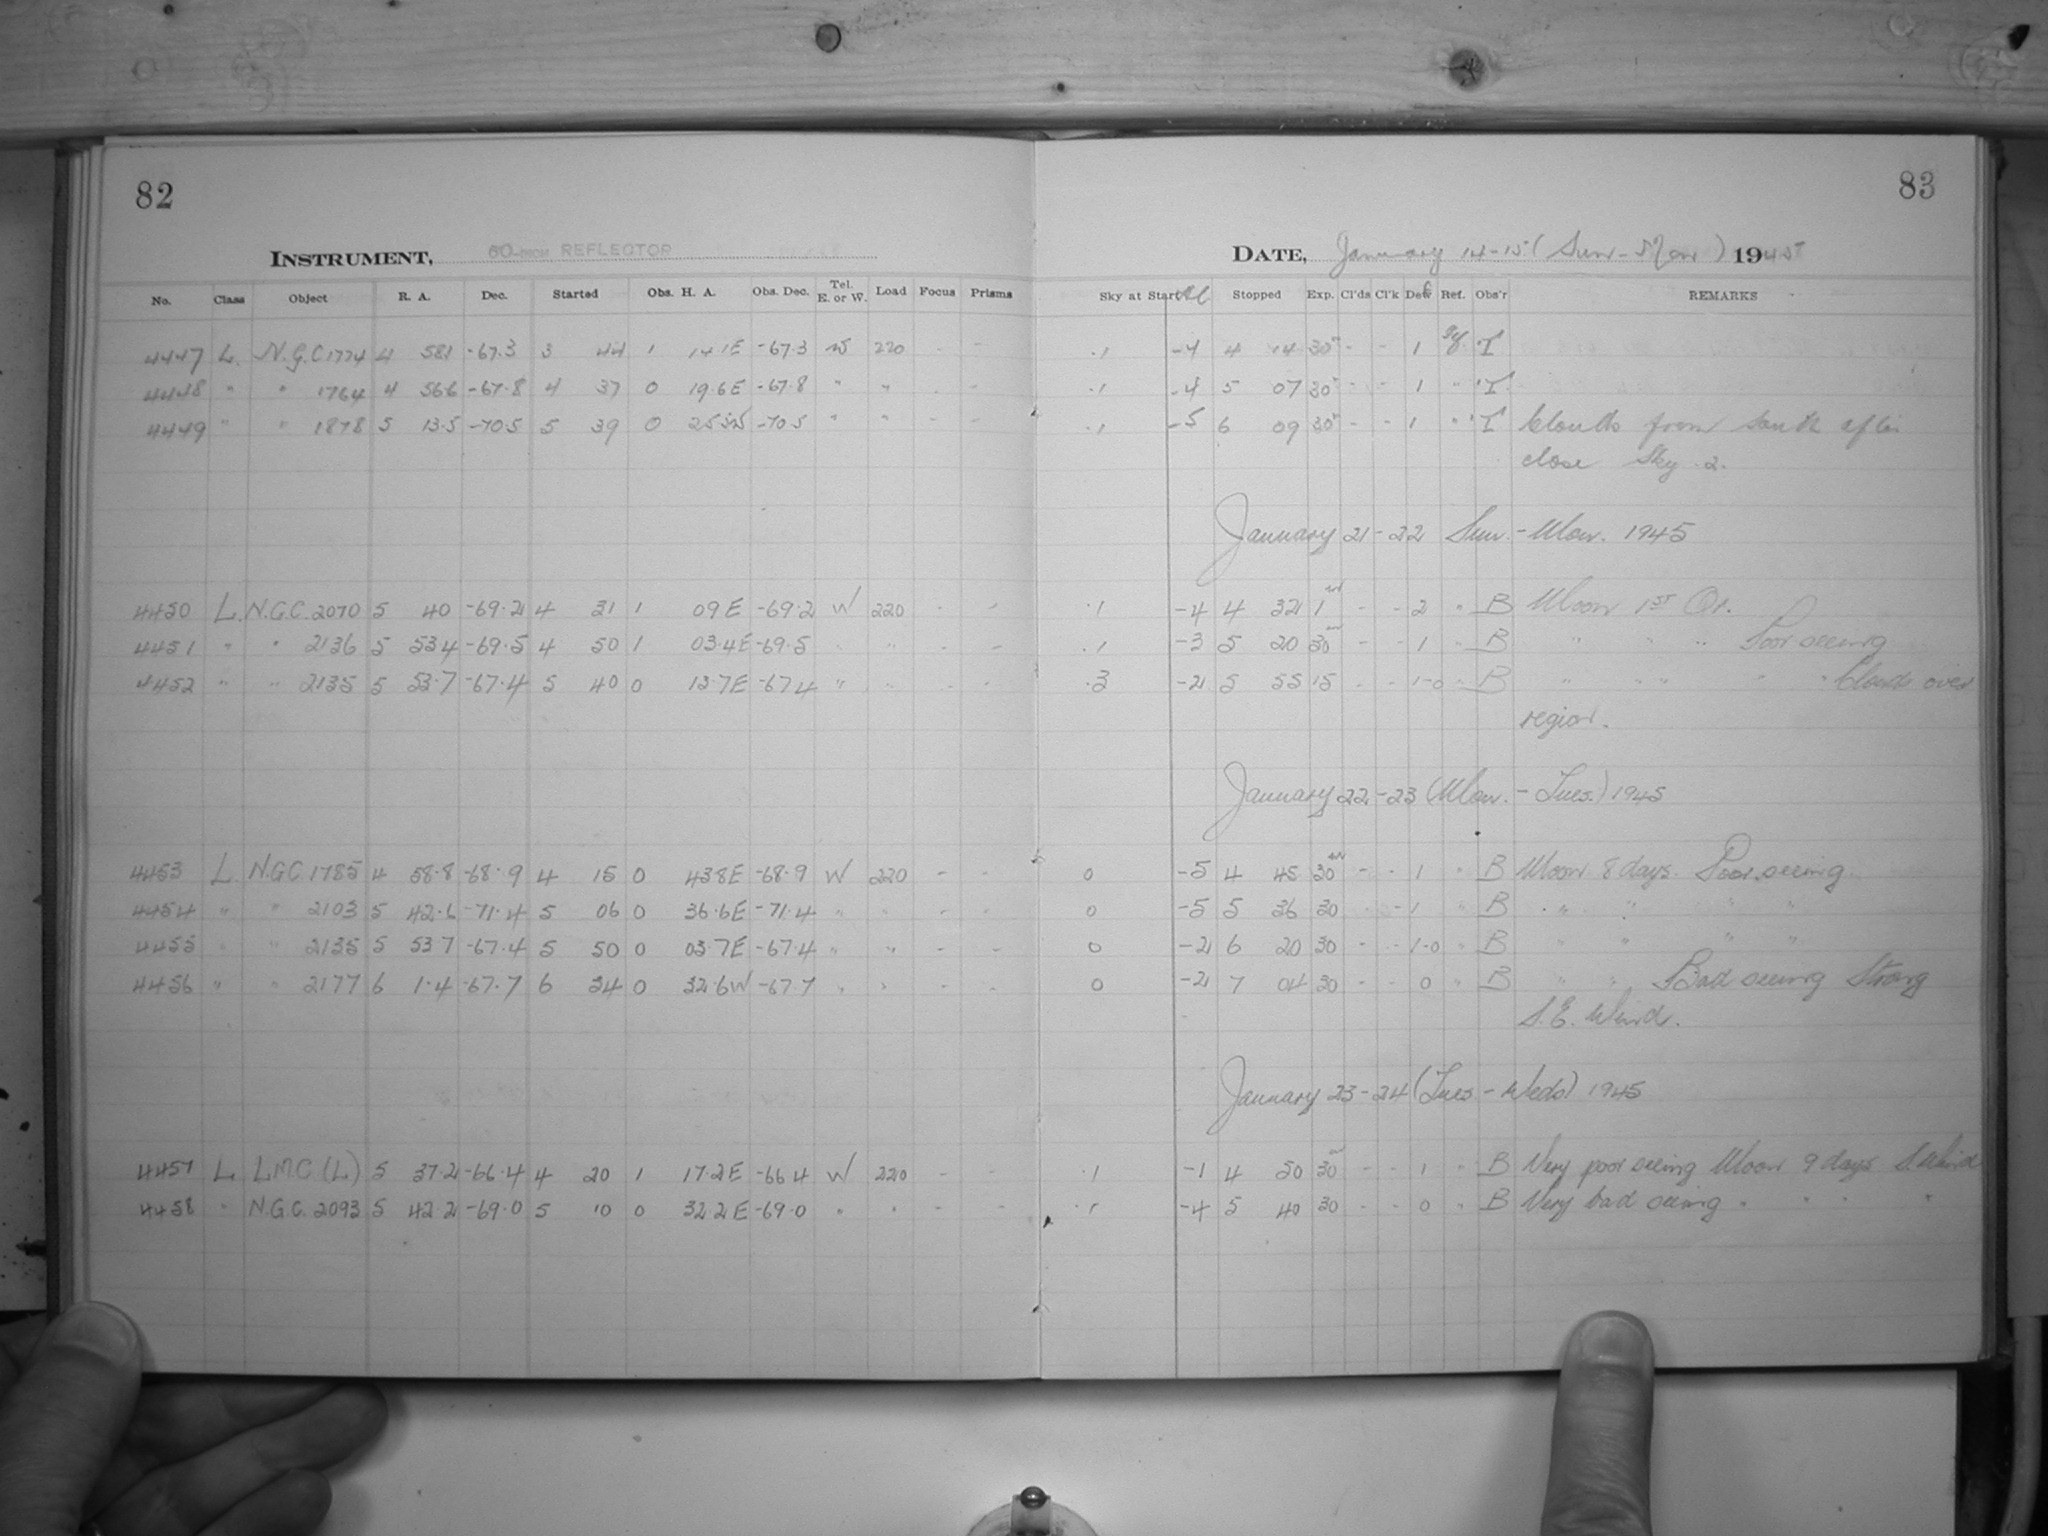 82
83
INSTRUMENT, 60-INCH REFLECTOR
DATE, January 14-15 (Sun-Mon) 1945
No. Class Object R. A. Dec. Started Obs. H. A. Obs. Dec. Tel. E. or W. Load Focus Prisms Sky at Start Stopped Exp. Cl'ds Cl'k Def Ref. Obs'r REMARKS
4447 L. N.G.C 1774 4 58.1 -67.3 3 44 1 14.1E -67.3 W 220 - - .1 -4 4 14 30m - - 1 I
4448 " " 1764 4 56.6 -67.8 4 37 0 19.6E -67.8 " " - - .1 -4 5 07 30m - - 1 " I
4449 " " 1878 5 13.5 -70.5 5 39 0 25.5W -70.5 " " - - .1 -5 6 09 30m - - 1 " I Clouds from South after
close Sky .2.
January 21-22 Sun.-Mon. 1945
4450 L. N.G.C. 2070 5 40 -69.2 4 31 1 09E -69.2 W 220 - - .1 -4 4 32 1m - - 2 " B Moon 1st Qr.
4451 " " 2136 5 53.4 -69.5 4 50 1 03.4E -69.5 " " - - .1 -3 5 20 30m - - 1 " B " " " Poor seeing
4452 " " 2135 5 53.7 -67.4 5 40 0 13.7E -67.4 " " - - .3 -2 5 55 15 - - 1-0 " B " " " " " Clouds over
region.
January 22-23 (Mon. - Tues.) 1945
4453 L. N.G.C. 1785 4 58.8 -68.9 4 15 0 43.8E -68.9 W 220 - - 0 -5 4 45 30m - - 1 " B Moon 8 days. Poor seeing.
4454 " " 2103 5 42.6 -71.4 5 06 0 36.6E -71.4 " " - - 0 -5 5 36 30 - - 1 " B " " " "
4455 " " 2135 5 53.7 -67.4 5 50 0 03.7E -67.4 " " - - 0 -2 6 20 30 - - 1-0 " B " " " "
4456 " " 2177 6 1.4 -67.7 6 34 0 32.6W -67.7 " " - - 0 -2 7 04 30 - - 0 " B " " Bad seeing Strong
S.E. Wind.
January 23-24 (Tues - Weds) 1945
4457 L LMC (L) 5 37.2 -66.4 4 20 1 17.2E -66.4 W 220 - - .1 -1 4 50 30m - - 1 " B Very poor seeing Moon 9 days S. Wind
4458 " N.G.C. 2093 5 42.2 -69.0 5 10 0 32.2E -69.0 " " - - .1 -4 5 40 30 - - 0 " B Very bad seeing " " " "